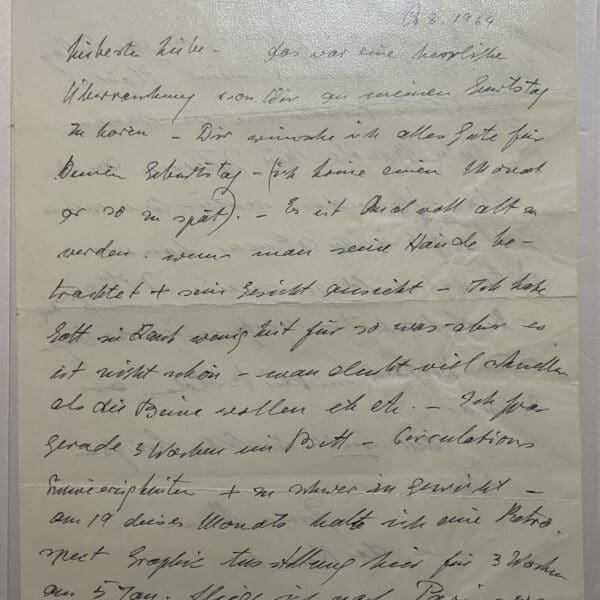 3. 1964
Liebste Liebe - das war eine herrliche
Überraschung von Dir zu meinem Geburtstag
zu hören - Dir wünsche ich alles Gute für
Deinen Geburtstag - (ich komme einen Monat
or so zu spät). - Es ist voll alt zu
werden. wenn man seine Hände be-
trachtet + sein Gesicht ansieht - Ich habe
Gott sei Dank wenig Zeit für so was - aber es
ist nicht schön - man denkt viel schneller
als die Beine wollen etc etc. - Ich war
gerade 3 Wochen im Bett - Circulations
+ zu schwer im Gewicht -
am 19 dieses Monats hatte ich eine Retro
spect Graphic Ausstellung hier für 3 Wochen
am 5 Jan. fliege ich nach Paris